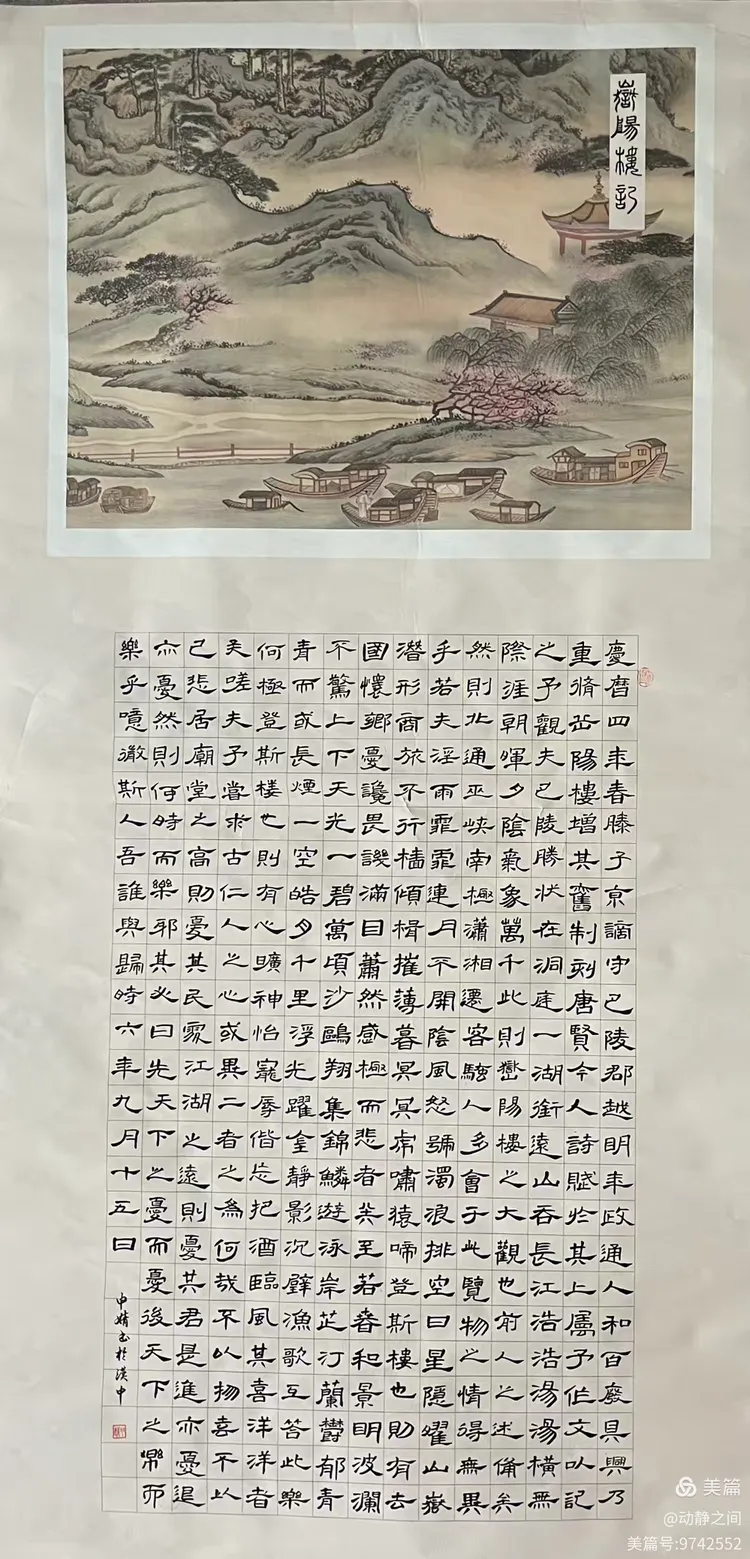 嶽陽樓記
慶曆四年春滕子京謫守巴陵郡越明年政通人和百廢具興乃
重脩岳陽樓增其舊制刻唐賢今人詩賦於其上屬予作文以記
之予觀夫巴陵勝狀在洞庭一湖銜遠山吞長江浩浩湯湯橫無
際涯朝暉夕陰氣象萬千此則嶽陽樓之大觀也前人之述備矣
然則北通巫峽南極瀟湘遷客騷人多會于此覽物之情得無異
乎若夫淫雨霏霏連月不開陰風怒號濁浪排空日星隱曜山嶽
潛形商旅不行檣傾楫摧薄暮冥冥虎嘯猿啼登斯樓也則有去
國懷鄉憂讒畏譏滿目蕭然感極而悲者矣至若春和景明波瀾
不驚上下天光一碧萬頃沙鷗翔集錦鱗遊泳岸芷汀蘭鬱郁青
青而或長煙一空皓月千里浮光躍金靜影沉璧漁歌互答此樂
何極登斯樓也則有心曠神怡寵辱偕忘把酒臨風其喜洋洋者
矣嗟夫予嘗求古仁人之心或異二者之為何哉不以物喜不以
己悲居廟堂之高則憂其民處江湖之遠則憂其君是進亦憂退
亦憂然則何時而樂邪其必曰先天下之憂而憂後天下之樂而
樂乎噫微斯人吾誰與歸時六年九月十五日
申婧書於漢中
美篇
@动静之间
美篇号:9742552